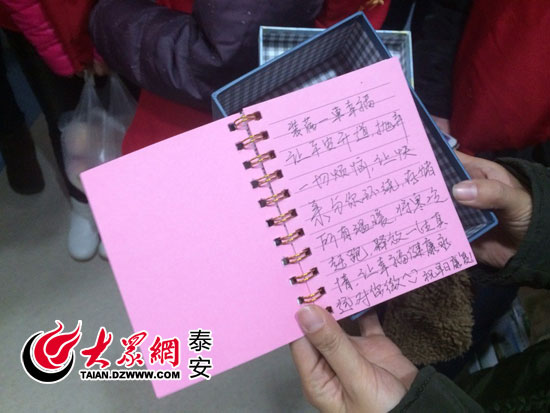 装满一车幸福
让平安开道,抛弃
一切烦恼,让快
乐与您环绕,存储
所有温暖,将寒冷
赶跑,释放一生真
情,让幸福健康永
远对您微笑 祝早日康复
大眾網 泰安
TAIAN.DZWWW.COM